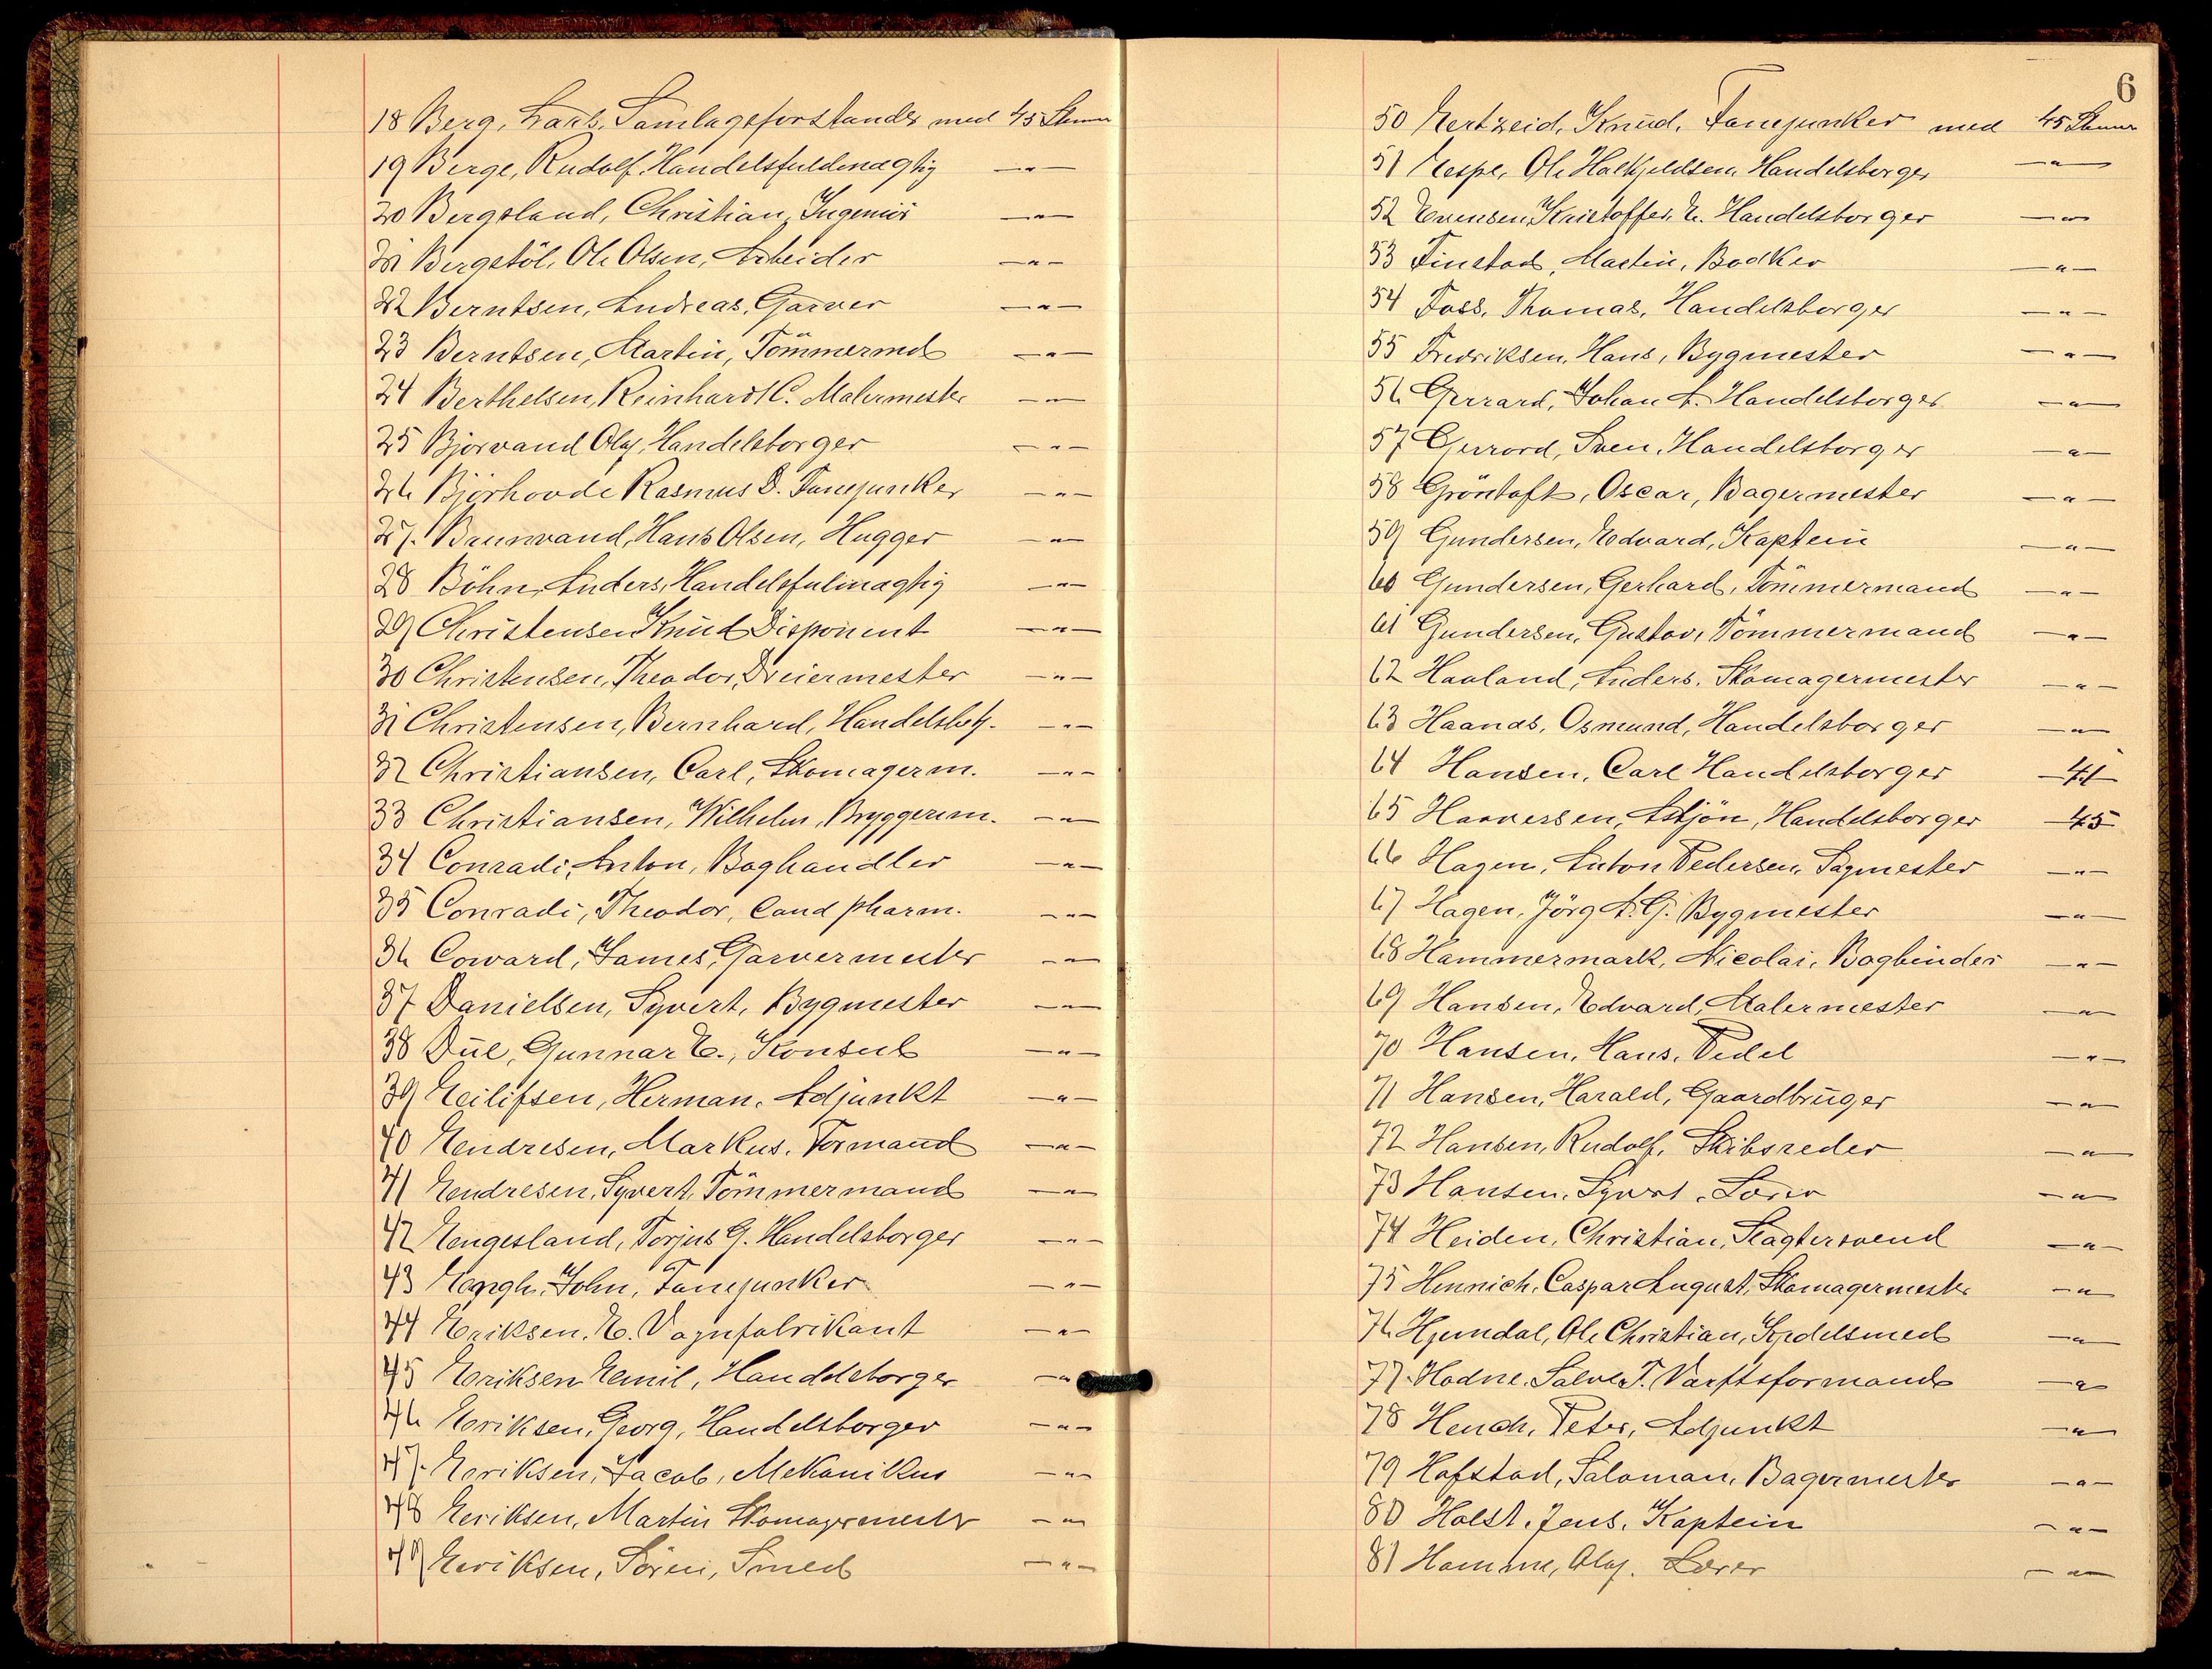 18 Berg, Lars, Samlagsforstander med 45 Stemmer
19 Berge, Rudolf, Handelsfuldmægtig —"—
20 Bergsland, Christian, Ingeniör —"—
21 Bergstöl, Ole Olsen, Arbeider —"—
22 Berntsen, Andreas, Garver —"—
23 Berntsen, Martin, Tömmermd —"—
24 Berthelsen, Reinhardt C. Malermester —"—
25 Bjorvand Olaf, Handelsborger —"—
26 Björhovde Rasmus D. Fanejunker —"—
27. Braunvand, Hans Olsen, Hugger —"—
28 Böhn, Anders, Handelsfulmægtig —"—
29 Christensen Knud Disponent —"—
30 Christensen, Theodor, Dreiermester —"—
31 Christensen, Bernhard, Handelsbetj. —"—
32 Christiansen, Carl, Skomagerm. —"—
33 Christiansen, Wilhelm, Bryggerim. —"—
34 Conradi, Anton, Boghandler —"—
35 Conradi, Theodor, Cand pharm. —"—
36 Coward, James, Garvermester —"—
37 Danielsen, Syvert, Bygmester —"—
38 Due, Gunnar E., Konsul —"—
39 Eilifsen, Herman, Adjunkt —"—
40 Endresen, Markus, Formand —"—
41 Endresen, Syvert, Tömmermand —"—
42 Engesland, Torjus G. Handelsborger —"—
43 John, Fanejunker —"—
44 Eriksen, E. Vognfabrikant —"—
45 Eriksen Emil, Handelsborger —"—
46 Eriksen, Georg, Handelsborger —"—
47. Eriksen, Jacob, Mekanikus —"—
48 Eriksen, Martin Skomagermester —"—
49 Eriksen, Sören, Smed —"—
6
50 Ertzeid, Knud, Fanejunker med 45 Stemmer
51 Espe, Ole Halkjeldsen, Handelsborger —"—
52 Evensen, Kristoffer, E. Handelsborger —"—
53 Finstad, Martin, Bødker —"—
54 Foss, Thomas, Handelsborger —"—
55 Fredriksen, Hans, Bygmester —"—
56 Gerrard, Johan A. Handelsborger —"—
57 Sven, Handelsborger —"—
58 Gröntoft, Oscar, Bagermester —"—
59 Gundersen, Edvard, Kaptein —"—
60 Gundersen, Gerhard, Tömmermand —"—
61 Gundersen, Gustav, Tömmermand —"—
62 Haaland, Anders, Skomagermester —"—
63 Haanæs, Osmund, Handelsborger —"—
64 Hansen, Carl Handelsborger —41—
65 Haaversen, Handelsborger —45—
66 Hagen, Anton Pedersen, Sagmester —"—
67 Hagen, Jörg A. G. Bygmester —"—
68 Hammermark, Nicolai, Bogbinder —"—
69 Hansen, Edvard, Malermester —"—
70 Hansen, Hans, Pedel —"—
71 Hansen, Harald, Gaardbruger —"—
72 Hansen, Rudolf, Skibsreder —"—
73 Hansen, Syvert, Lærer —"—
74 Heiden, Christian, Slagtersvend —"—
75 Hennich, Caspar August, Skomagermester —"—
76 Ole Christian, —"—
77. Hodne, Salve T. Værftsformand —"—
78 Peter, Adjunkt —"—
79 Hofstad, Saloman, Bagermester —"—
80 Holst, Jens, Kaptein —"—
81 Homme, Olaf. Lærer —"—